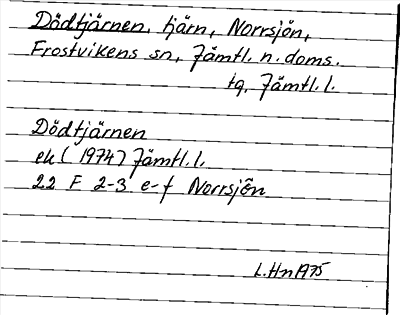 Dödtjärnen, tjärn, Norrsjön,
Frostvikens sn, Jämtl. n. doms.
tg. Jämtl. l.
Dödtjärnen
ek (1974) Jämtl. l.
22 F 2-3 e-f Norrsjön
L.Hn 1975